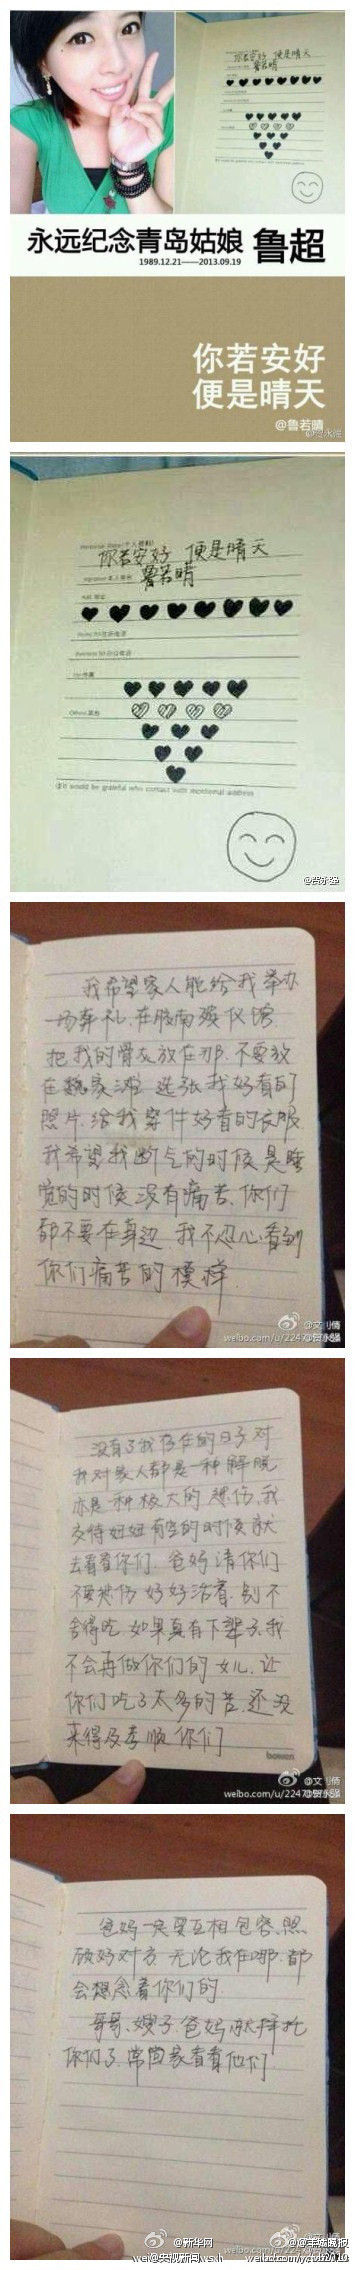 你若安好 便是晴天
鲁若晴
永远纪念青岛姑娘 鲁超
1989.12.21——2013.09.19
你若安好
便是晴天
@鲁若晴
你若安好 便是晴天
鲁若晴
It would be grateful who contact with mentional address
@贺永强
我希望家人能给我举办
一场葬礼,在胶南殡仪馆
把我的骨灰放在那.不要放
在魏家滩 选张我好看的
照片.给我穿件好看的衣服
我希望我断气的时候是睡
觉的时候没有痛苦.你们
都不要在身边 我不忍心看到
你们痛苦的模样
没有了我存在的日子对
我对家人都是一种解脱
亦是一种极大的悲伤.我
交待妞妞有空的时候就
去看看你们.爸妈请你们
不要悲伤 好好活着.别不
舍得吃.如果真有下辈子.我
不会再做你们的女儿.让
你们吃了太多的苦.还没
来得及孝顺你们
bowen
爸妈一定要互相包容、照
顾好对方 无论我在哪.都
会想念着你们的
哥哥、嫂子.爸妈就拜托
你们了.常回家看看他们
@新华网
@羊城晚报